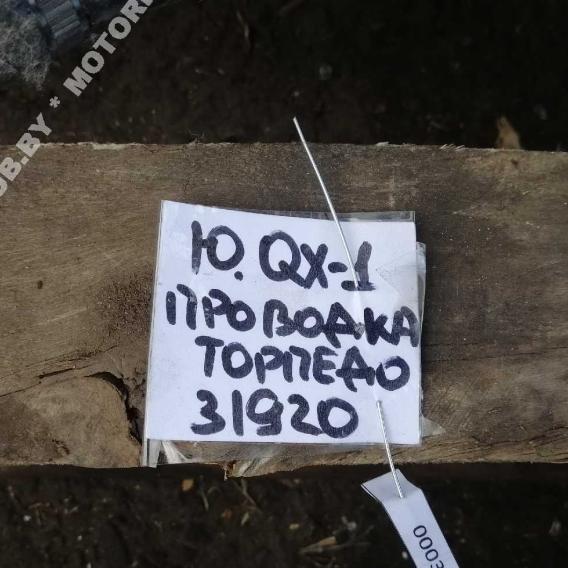 OB.BY * MOTOR
Ю. QX-1
ПРОВОДКА
ТОРПЕДО
31920
000